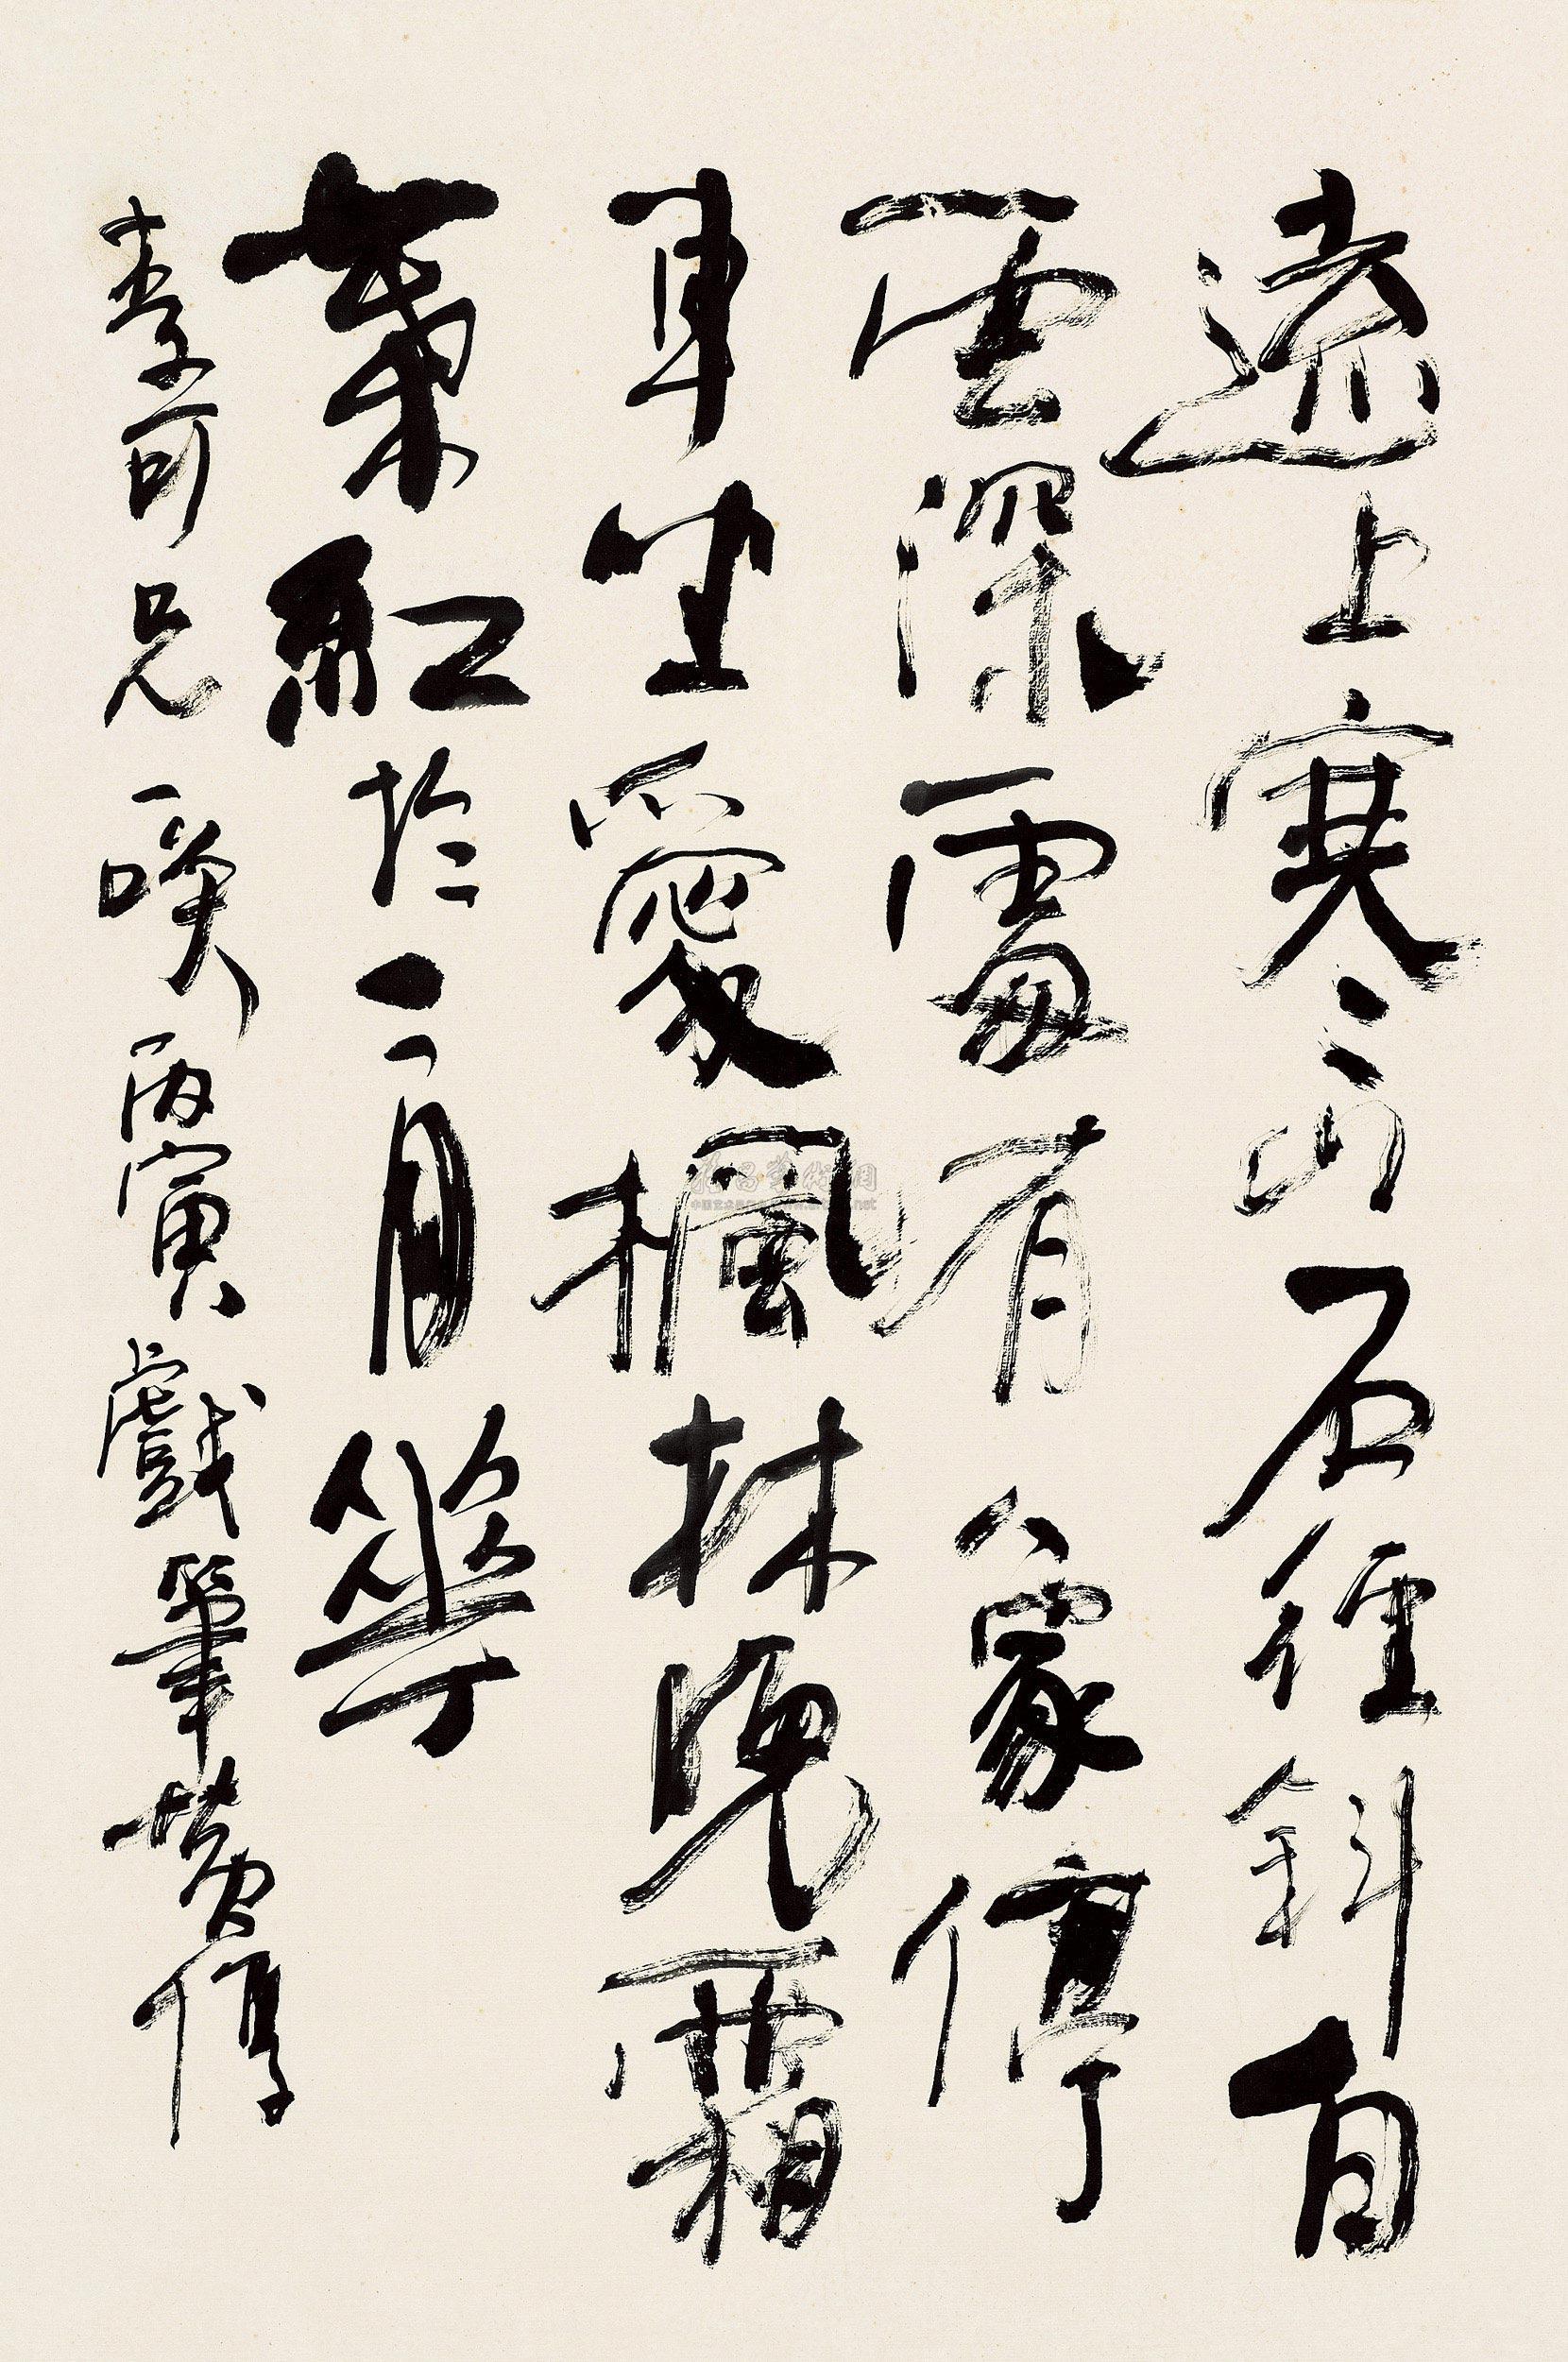 遠上寒山石徑斜白
雲深處有人家停
車坐愛楓林晚霜
葉紅於二月華
李可兄一咲丙寅戲筆黃惇